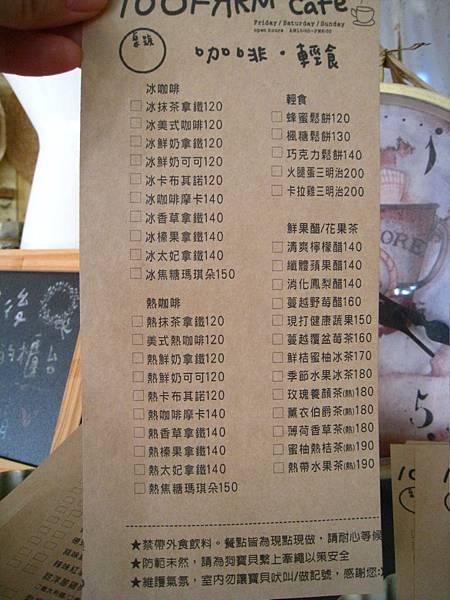 100FARM Cafe
Friday/Saturday/Sunday
咖啡·輕食
冰咖啡
冰抹茶拿鐵120
冰美式咖啡120
冰鮮奶拿鐵120
冰鮮奶可可120
冰卡布其諾120
冰咖啡摩卡140
冰香草拿鐵140
冰榛果拿鐵140
冰太妃拿鐵140
冰焦糖瑪琪朵150
熱咖啡
熱抹茶拿鐵120
美式熱咖啡120
熱鮮奶拿鐵120
熱鮮奶可可120
熱卡布其諾120
熱咖啡摩卡140
熱香草拿鐵140
熱榛果拿鐵140
熱太妃拿鐵140
熱焦糖瑪琪朵150
輕食
蜂蜜鬆餅120
楓糖鬆餅130
巧克力鬆餅140
火腿蛋三明治200
卡拉雞三明治200
鮮果醋/花果茶
清爽檸檬醋140
纖體蘋果醋140
消化鳳梨醋140
蔓越野莓醋160
現打健康蔬果150
蔓越覆盆莓茶160
鮮桔蜜柚冰茶170
季節水果冰茶180
玫瑰養顏茶(熱)180
薰衣伯爵茶(熱)180
薄荷香草茶(熱)180
蜜柚熱桔茶(熱)190
熱帶水果茶(熱)190
★禁帶外食飲料。餐點皆為現點現做，請耐心等候
★防範未然，請為狗寶貝繫上牽繩以策安全
★維護氣氛，室內勿讓寶貝吠叫/做記號，感謝您
1
5